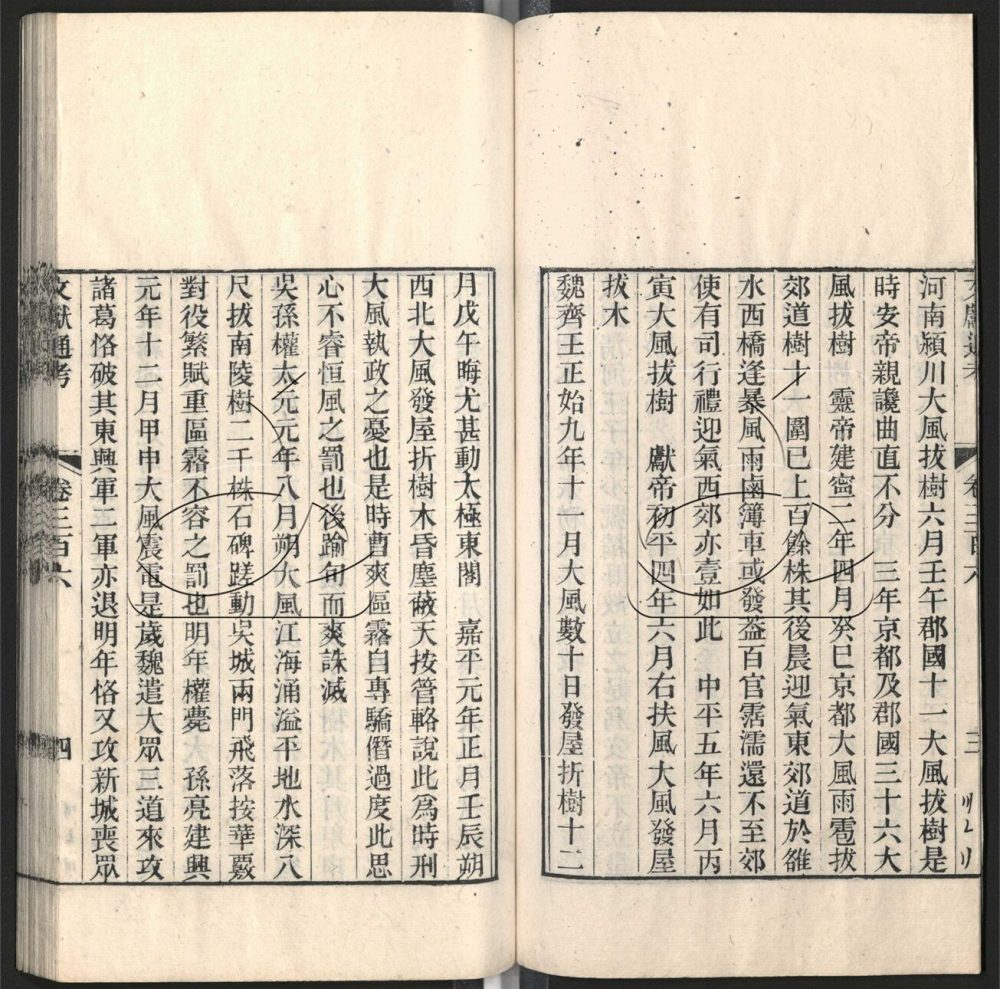 河南潁川大風拔樹六月壬午郡國十一大風拔樹是
時安帝親讒曲直不分　三年京都及郡國三十六大
風拔樹　靈帝建寧二年四月癸巳京都大風雨雹拔
郊道樹十一圍已上百餘株其後晨迎氣東郊道於雒
水西橋逢暴風雨鹵簿車或發葢百官霑濡還不至郊
使有司行禮迎氣西郊亦壹如此　中平五年六月丙
寅大風拔樹　獻帝初平四年六月右扶風大風發屋
拔木
魏齊王正始九年十一月大風數十日發屋折樹十二
月戊午晦尤甚動太極東閣　嘉平元年正月壬辰朔
西北大風發屋折樹木昏塵蔽天按管輅說此為時刑
大風執政之憂也是時曹爽區霿自專驕僭過度此思
心不睿恒風之罰也後踰旬而爽誅滅
吳孫權太元元年八月朔大風江海涌溢平地水深八
尺拔南陵樹二千株石碑蹉動吳城兩門飛落按華覈
對役繁賦重區霿不容之罰也明年權薨　孫亮建興
元年十二月甲申大風震電是歲魏遣大眾三道來攻
諸葛恪破其東興軍二軍亦退明年恪又攻新城喪眾
文獻通考
卷三百六
四